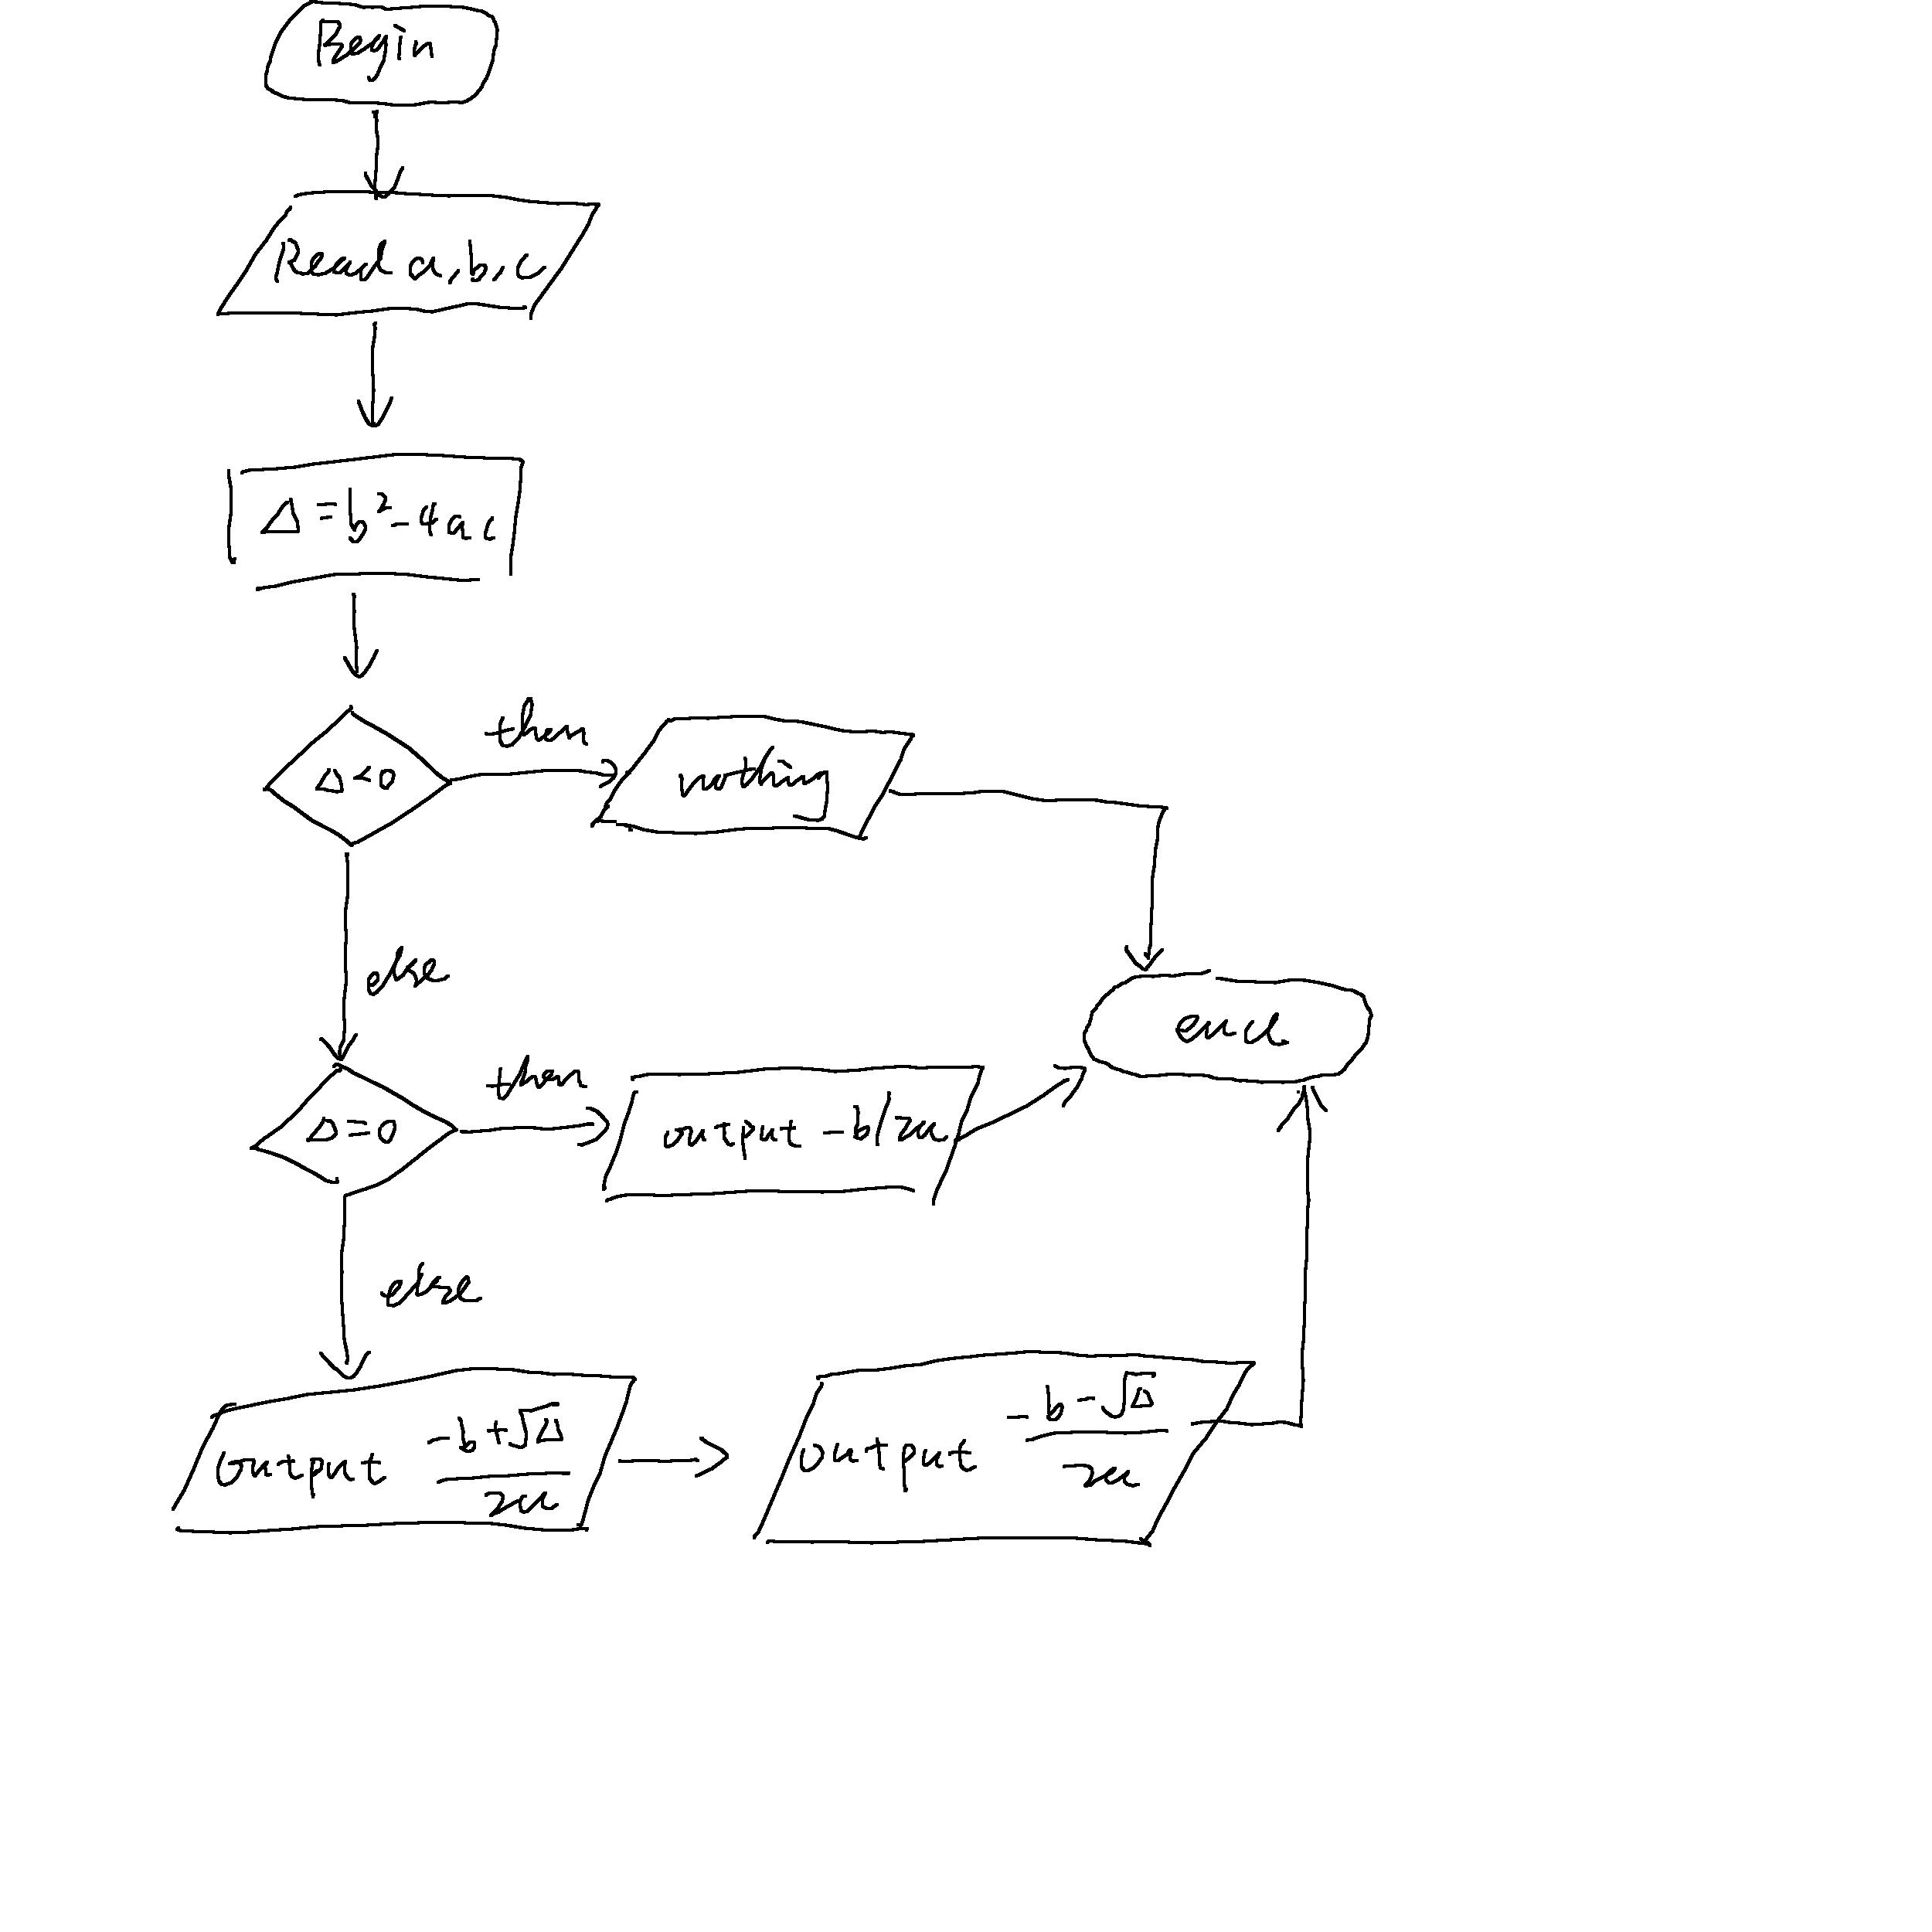 Begin
Read a, b, c
Δ = b² - 4ac
Δ < 0
then
nothing
else
end
Δ = 0
then
output -b/2a
else
output (-b+√Δ)/2a
output (-b-√Δ)/2a